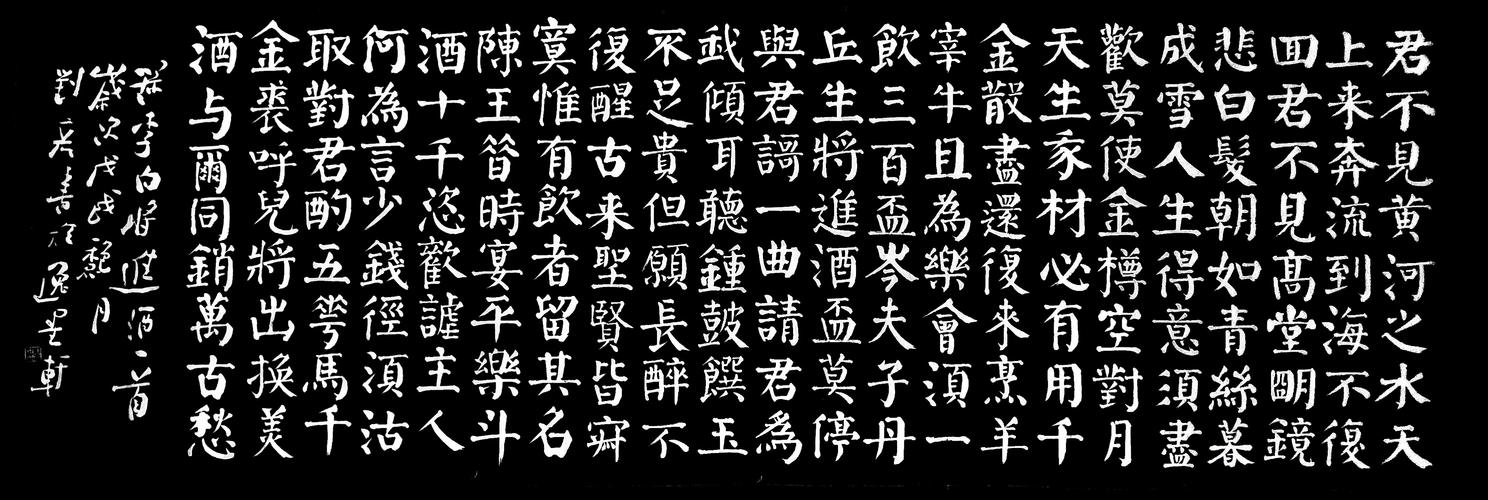 君不見黄河之水天
上来奔流到海不復
囬君不見高堂朙鏡
悲白髮朝如青絲暮
成雪人生得意須盡
歡莫使金樽空對月
天生家材必有用千
金散盡還復來烹羊
宰牛且為樂會須一
飲三百盃岑夫子丹
丘生將進酒盃莫停
與君謌一曲請君為
我傾耳聽鍾鼓饌玉
不足貴但願長醉不
復醒古来聖賢皆寂
寞惟有飲者留其名
陳王昔時宴平樂斗
酒十千恣歡謔主人
何為言少錢徑須沽
取對君酌五花馬千
金裘呼兒將出換美
酒与爾同銷萬古愁
録李白將進酒一首
歲次戊戌龝月
劉書於逸墨軒